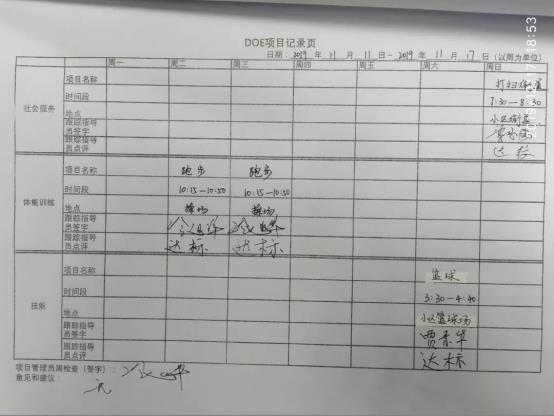 DOE项目记录页
日期：2019 年 11 月 11 日-2019 年 11 月 17 日（以周为单位）
周一 周二 周三 周四 周五 周六 周日
社会服务
项目名称 打扫街道
时间段 7:30—8:30
地点
跟踪指导员签字
跟踪指导员点评 达标
体能训练
项目名称 跑步 跑步
时间段 10:15—10:50 10:15—10:50
地点 操场 操场
跟踪指导员签字
跟踪指导员点评 达标 达标
技能
项目名称 篮球
时间段 3:30—4:40
地点 小区篮球场
跟踪指导员签字
跟踪指导员点评 达标
项目管理员周检查（签字）：
意见和建议： 无